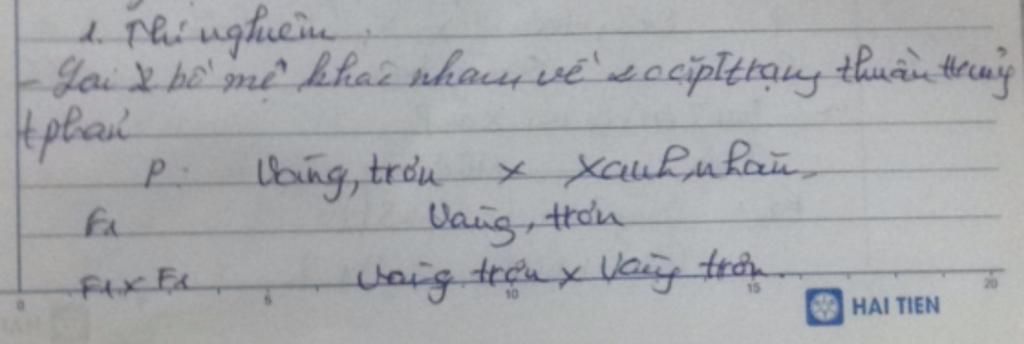 1. Thí nghiệm.
- Lai 2 bố mẹ khác nhau về 2 cặp T trạng thuần chủng
t phản
P: Vàng, trơn x Xanh, nhăn
F1 Vàng, trơn
F1 x F1 Vàng trơn x Vàng trơn
0 5 10 15 20
HAI TIEN